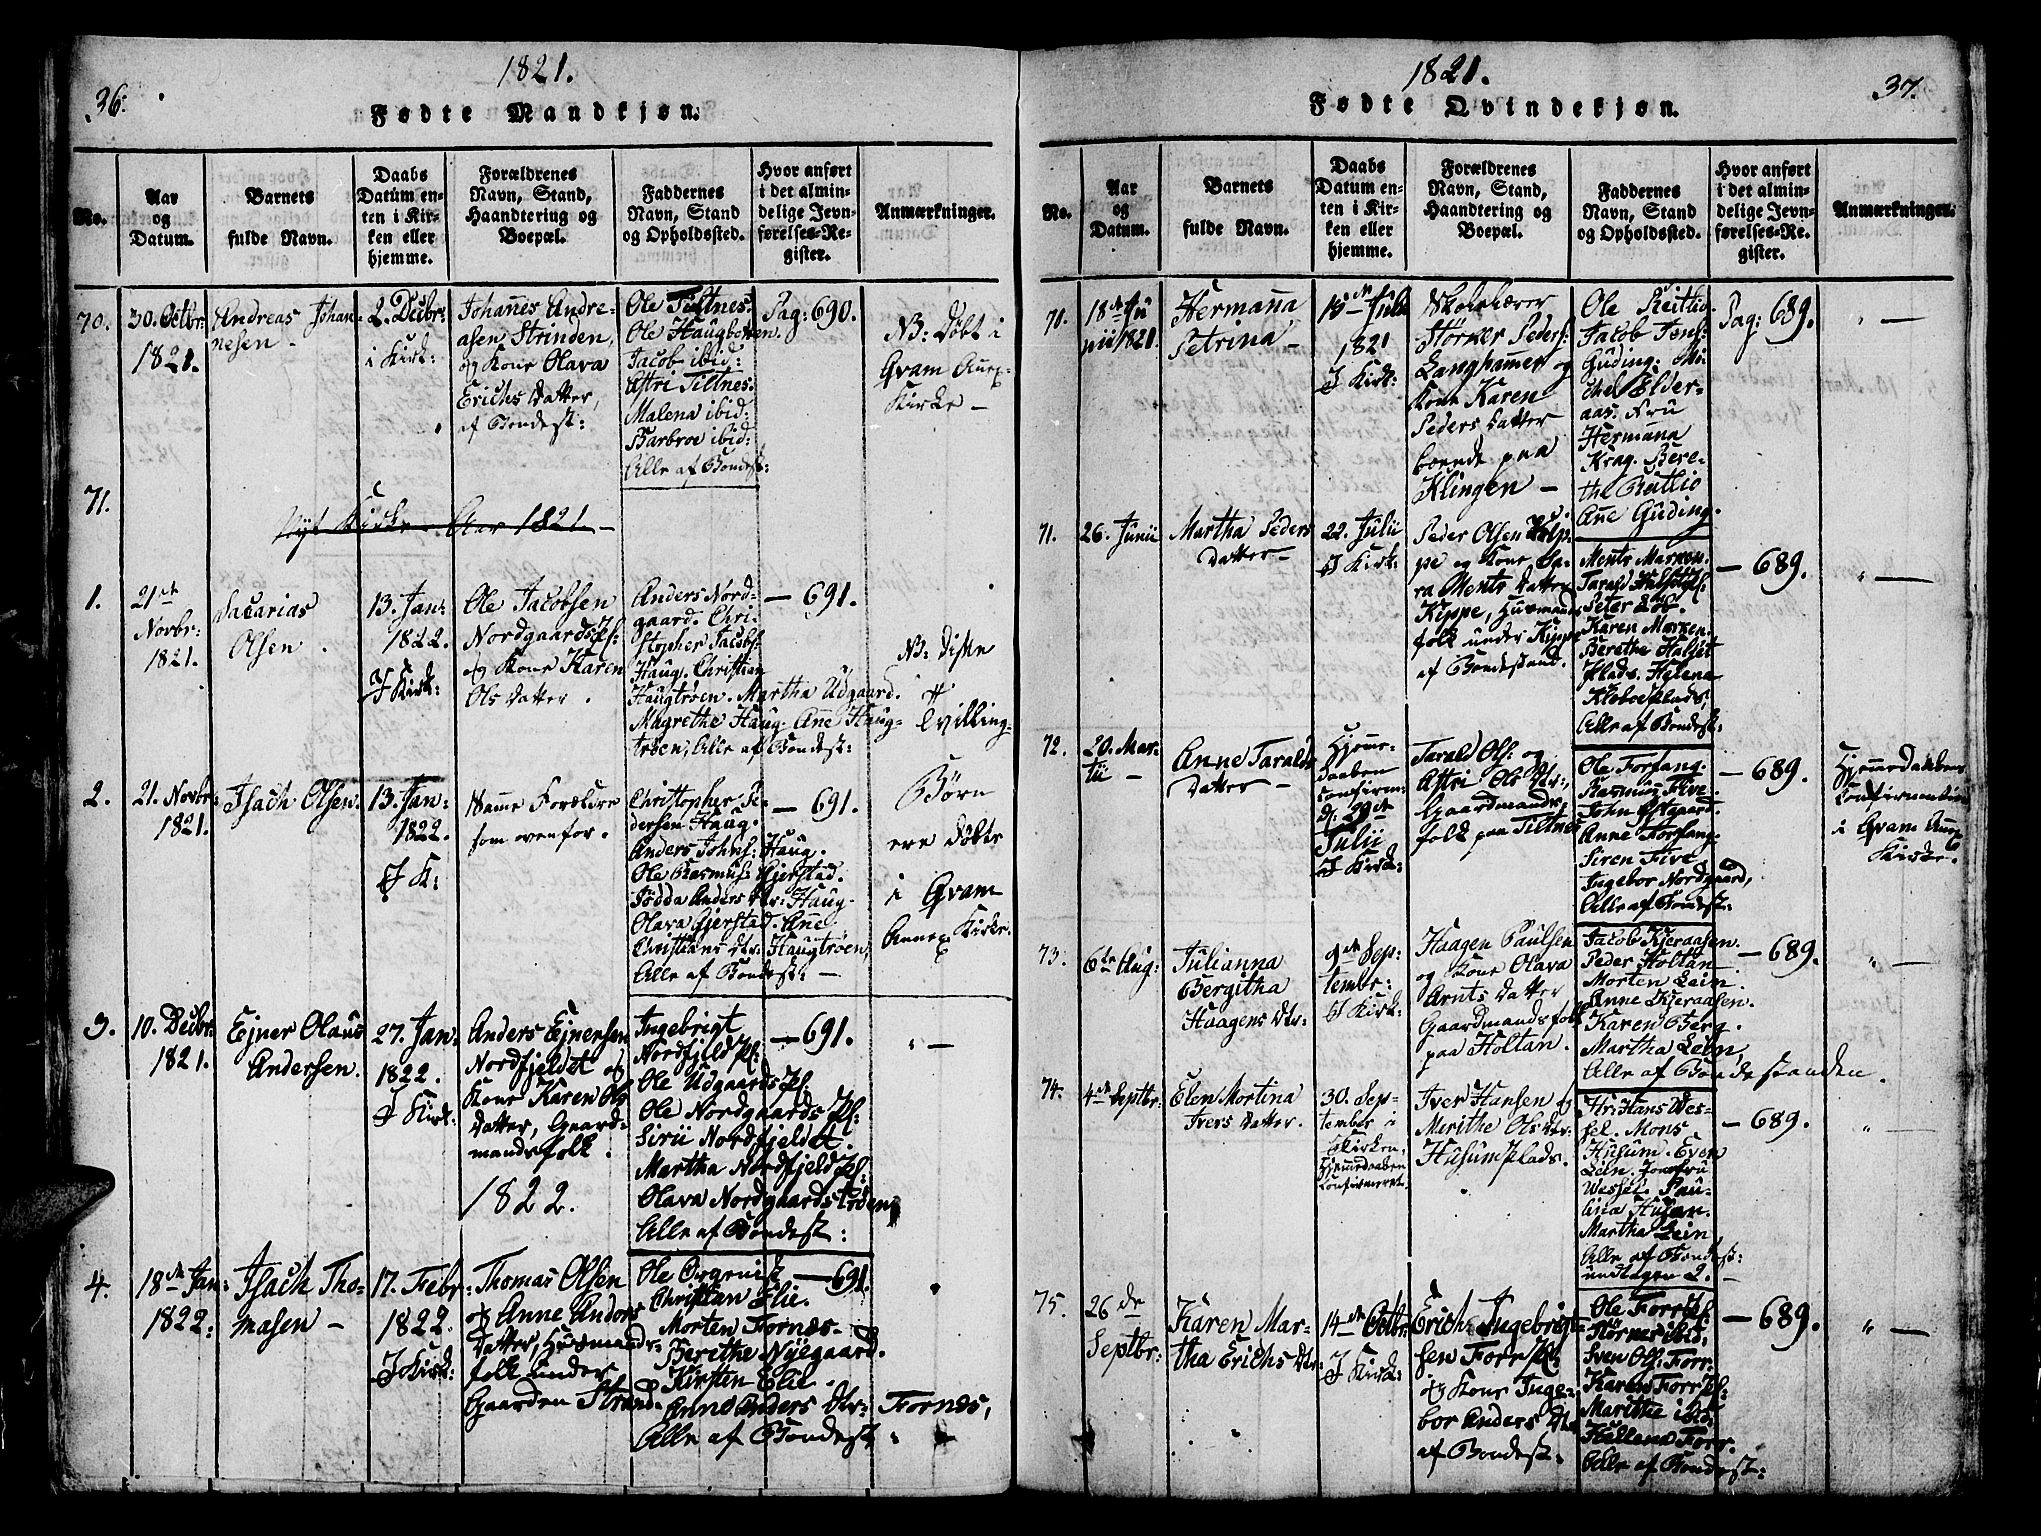 36.
1821.
Fødte Mandkjøn.
No.
Aar
og
Datum.
Barnets
fulde Navn.
Daabs
Datum en-
ten i Kir-
ken eller
hjemme.
Forældrenes
Navn, Stand,
Haandtering og
Boepæl.
Faddernes
Navn, Stand
og Opholdssted.
Hvor anført
i det almin-
delige Jevn-
førelses-Re-
gister.
Anmærkninger.
70.
30. Octbr:
1821.
Andreas Johan-
nesen -
2. Decbr:
i Kirk:
Johanes Andre-
asen Strinden,
og Kone Olava
Erichs Datter,
af Bondest:
Ole Tiltnes.
Ole Haugbotten.
Jacob ibid:
Astri Tiltnes.
Malena ibid:
Barbroe ibid:
Alle af Bondest:
Pag: 690.
NB: Døbt i
Qvam Anex-
Kirke -
71.
Nyt Kirke-Aar 1821.
1.
21de
Novbr:
1821.
Zacarias
Olsen.
13. Jan:
1822.
I Kirk:
Ole Jacobsen
Nordgaards Pl:
og Kone Karen
Ols Datter.
Anders Nord-
gaard. Chri-
stopher Jacobs:
Haug. Christian
Haugtrøen. Martha Udgaard.
Magrethe Haug. Ane Haug-
trøen, Alle af Bondest:
- 691.
NB: Diske
Tvilling-
2.
21. Novbr:
1821.
Isach Olsen.
13. Jan:
1822.
I K:
Samme Forældre
som ovenfor.
Christopher Pe-
dersen Haug.
Anders Johns: Haug.
Ole Rasmus: Gjerstad.
Jødda Anders Dtr: Haug.
Olava Gjerstad. Ane
Christians Dtr: Haugtrøen,
Alle af Bondest: -
- 691.
Børn
ere døbte
i Qvam
Annex Kirke.
3.
10. Decbr:
1821.
Ejner Olaus
Andersen.
27. Jan:
1822.
I Kirk:
Anders Ejnersen
Nordfjeldet og
Kone Karen Ols
Datter, Gaard-
mandsfolk.
1822.
Ingebrigt
Nordfjeld Pl:
Ole Udgaards Pl:
Ole Nordgaards Pl:
Sirii Nordfjeldet.
Martha Nordfjeld Pl:
Olava Nordgaards trøen
Alle af Bondest:
- 691.
" -
4.
18de Jan:
1822.
Isach Tho-
masen -
17. Febr:
1822.
I Kirk:
Thomas Olsen
og Anne Anders
Datter, Husmands-
folk under
Gaarden Strand
Ole Orgenist
Christian Elie.
Morten Fornes.
Berithe Nyegaard.
Kirsten Elie.
Anne Anders Dtr: Fornes,
Alle af Bondest:
- 691.
37.
1821.
Fødte Qvindekjøn.
No.
Aar
og
Datum.
Barnets
fulde Navn.
Daabs
Datum en-
ten i Kir-
ken eller
hjemme.
Forældrenes
Navn, Stand,
Haandtering og
Boepæl.
Faddernes
Navn, Stand
og Opholdssted.
Hvor anført
i det almin-
delige Jevn-
førelses-Re-
gister.
Anmærkninger.
70.
18de Ju
nii 1821.
Hermanna
Petrina -
15de Julii
1821
I Kirk:
Skolelærer
Størker Peders:
Langhamer og
Kone Karen
Peders Datter
boende paa
Klingen -
Ole Reitlio
Jacob Jens:
Guding: Mi-
chel Elder-
aas. Fru
Hermana
Krag. Bere-
the Reitlio
Ane Guding.
Pag: 689.
" -
71.
26. Junii
Martha Peders
Datter -
22. Julii
I Kirk:
Peder Olsen Kip-
pe og Kone Sa-
ra Ments Datter
Kippe, Husmands
folk under Kippe
af Bondestand.
Ments Marken.
Tarald Halset Pl:
Peter Eide.
Karen Marken.
Berithe Halset
Plads. Helena
Kleboe Plads,
Alle af Bondest:
- 689.
" -
72.
20. Mar-
tii -
Anne Taralds
Datter -
Hjeme-
daaben
Confirm:
d: 29de
Julii
I Kirk:
Tarald Ols: og
Astri Ols Dtr:,
Gaardmands-
folk paa Tiltnes
Ole Forfang.
Rasmus Five.
John Østgaard.
Anne Forfang.
Siren Five.
Ingebor Nordgaard,
Alle af Bondest:
- 689.
Hjemedaaben
Confirmertes
i Qvam Anex
Kirke.
73.
6te Aug:
Julianna
Bergitha
Haagens Dtr:
9de Sep-
tembr:
I Kirk:
Haagen Paulsen
og Kone Olava
Arnts Datter
Gaardmandsfolk
paa Holtan.
Jacob Kjeraasen.
Peder Holtan.
Morten Lein.
Anne Kjeraasen.
Karen Berg.
Martha Lein,
Alle af Bondestanden.
- 689.
" -
74.
4de Septbr:
Elen Mortina
Ivers Datter.
30. Sep-
tember i
Kirken,
Hjemedaaben
Confirmeret.
Iver Hansen og
Merithe Ols Dtr:
Husum Plads.
Hr: Hans Wes-
sel. Mons
Husum. Even
Lein. Jomfru
Wessel. Pau-
lina Husan.
Martha Lein.
Alle af Bondest:
undtagen 2. -
- 689.
" -
75.
26de
Septbr:
Karen Mar-
tha Erichs Dtr:
14de Octbr:
I Kirk:
Erich Ingebrigt-
sen Forr Pl:
og Kone Inge-
bor Anders Dtr
af Bondest:
Ole Forr Pl:
Størker ibid.
Sven Ols: Forr.
Karen Forr Pl:
Marithe ibid.
Hulland Forr.
Alle af Bondest:
- 689.
" -